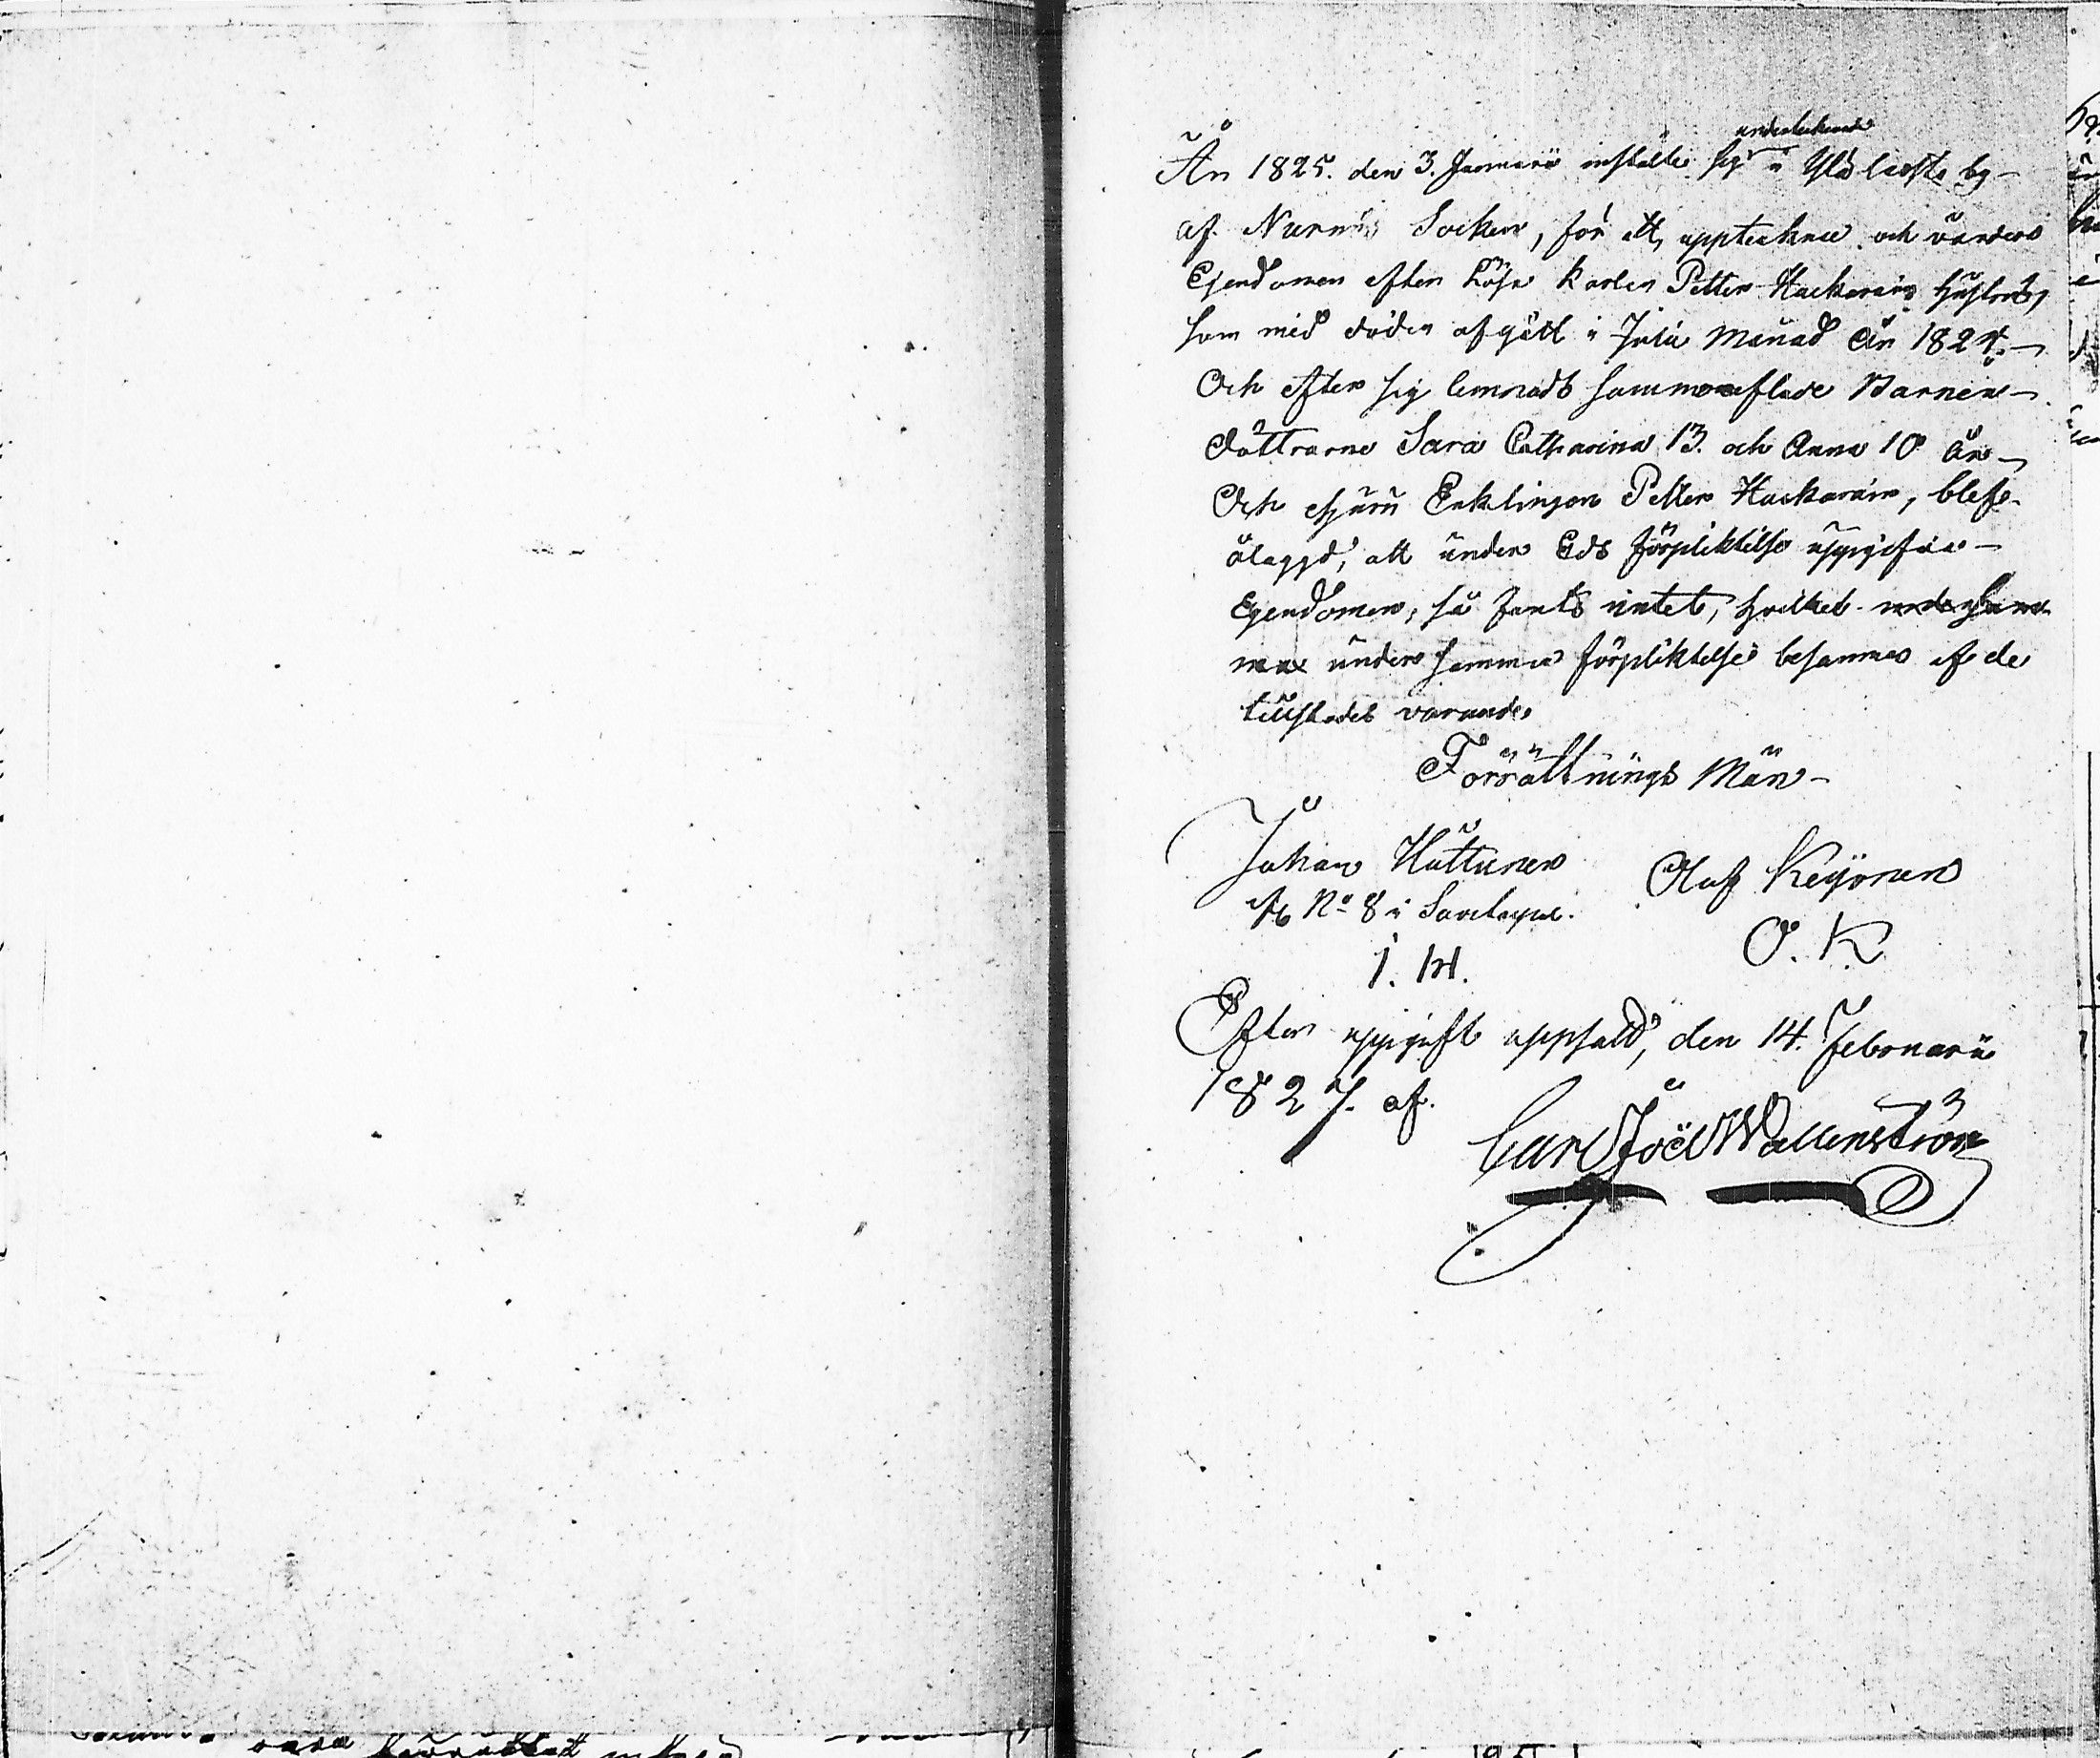 undertecknade
År 1825. den 3. Januarii instälte sig i by
af Nurmis Socken, för att, uppteckna och värdera
Egendomen efter Löse karlen Petter Hackarains hustru,
som med döden afgått i Julii Månad År 1824.
Och efter sig lemnadt sammanaflade Barnen
döttrarne Sara Catharina 13. och Anna 10 år
Och ehuru Enklingen Petter Hackarain, blef
ålaggd, att under Eds förpliktelse uppgifva
Egendomen, så fants intet, hvilket under sam
ma under samma förpliktelse besannas af de
tillstädes varande.
Förrättnings Män
Johan Huttunen
N° 8 i
I. H.
Olof Keijonen
O. K
Efter uppgift uppsatt, den 14. Februarii
1827. af.
Carl Joël Wallenström
vara förrättat